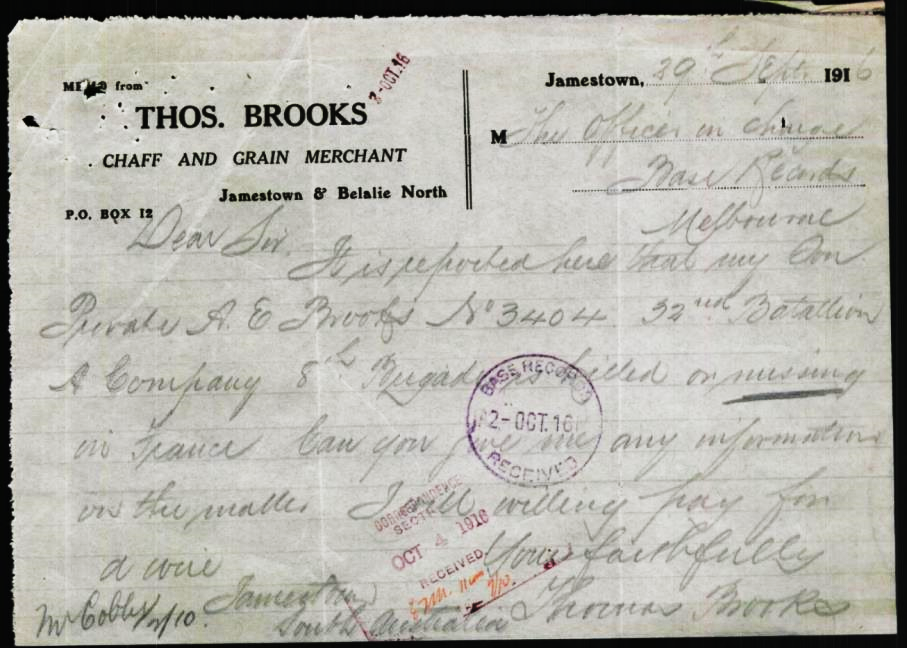 2-OCT.16
MEMO from
THOS. BROOKS
CHAFF AND GRAIN MERCHANT
Jamestown & Belalie North
P.O. BOX 12
Jamestown, 29th Sept 1916
M The Officer in charge
Base Records
Melbourne
Dear Sir.
It is reported here that my Son
Private A. E Brooks No 3404 32nd Batallion
A Company 8th Brigade is killed or missing
in France Can you give me any information
on the matter I will willing pay for
a wire
Yours faithfully
Thomas Brooks
Jamestown
South Australia
Mr Cobby 2/10.
BASE RECORDS
2-OCT.16
RECEIVED
CORRESPONDENCE
SECTN
OCT 4 1916
RECEIVED